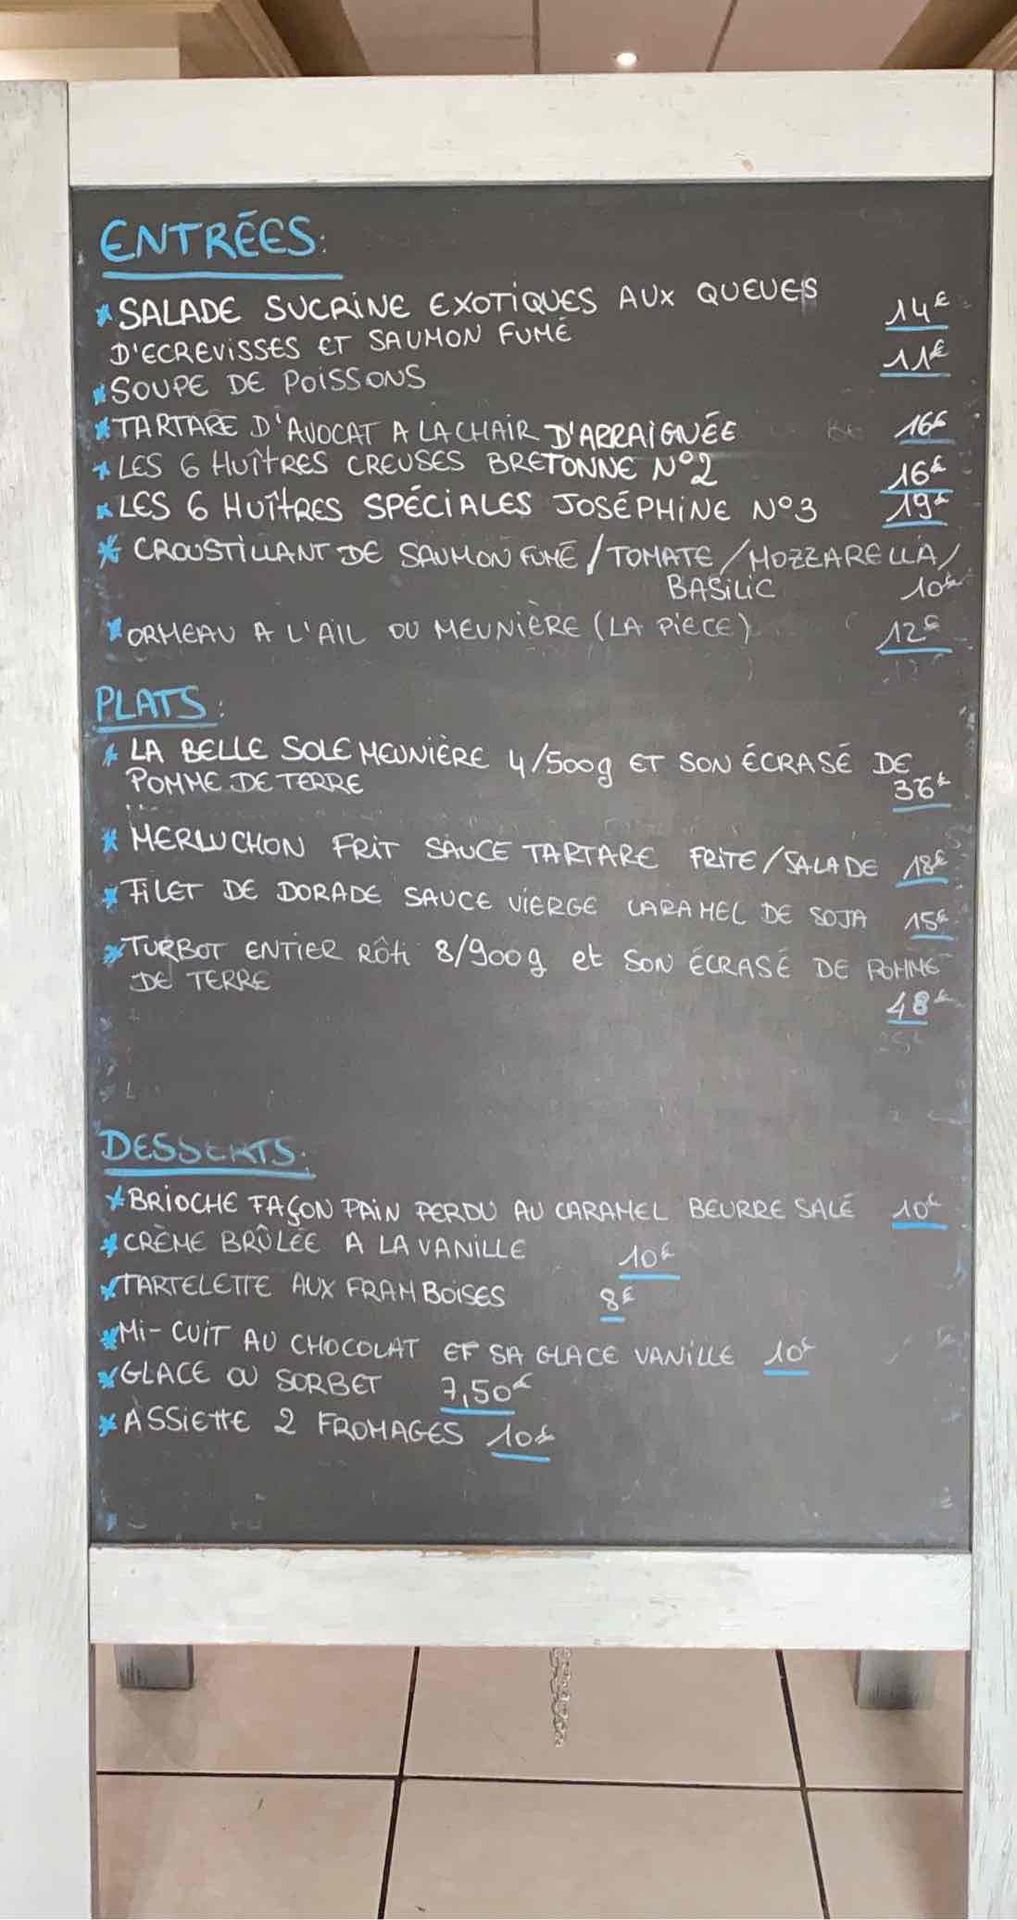 ENTRÉES:
* SALADE SUCRINE EXOTIQUES AUX QUEUES
D'ECREVISSES ET SAUMON FUMÉ 14€
* SOUPE DE POISSONS 11€
* TARTARE D'AVOCAT A LA CHAIR D'ARRAIGNÉE 16€
* LES 6 HUÎTRES CREUSES BRETONNE N°2 16€
* LES 6 HUÎTRES SPÉCIALES JOSÉPHINE N°3 19€
* CROUSTILLANT DE SAUMON FUMÉ / TOMATE / MOZZARELLA /
BASILIC 10€
* ORMEAU A L'AIL OU MEUNIÈRE (LA PIÈCE) 12€
PLATS:
* LA BELLE SOLE MEUNIÈRE 4/500g ET SON ÉCRASÉ DE
POMME DE TERRE 36€
* MERLUCHON FRIT SAUCE TARTARE FRITE / SALADE 18€
* FILET DE DORADE SAUCE VIERGE CARAMEL DE SOJA 15€
* TURBOT ENTIER RÔTI 8/900g et SON ÉCRASÉ DE POMME
DE TERRE
48€
DESSERTS:
* BRIOCHE FAÇON PAIN PERDU AU CARAMEL BEURRE SALÉ 10€
* CRÈME BRÛLÉE A LA VANILLE 10€
* TARTELETTE AUX FRAMBOISES 8€
* MI-CUIT AU CHOCOLAT ET SA GLACE VANILLE 10€
* GLACE OU SORBET 7,50€
* ASSIETTE 2 FROMAGES 10€